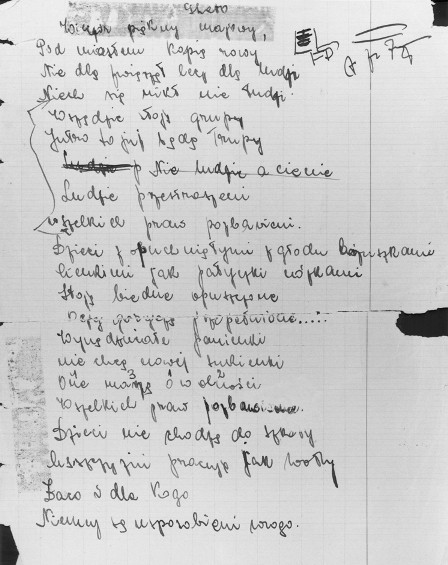 Ghetto
piękny majowy,
Pod miastem kopią rowy
Nie dla zwierząt lecz dla ludzi
Niech się nikt nie łudzi.
Wszędzie stoją grupy
Jutro to już będą trupy
Nie ludzie a cienie
Ludzie przestraszeni
Wszelkich praw pozbawieni.
Dzieci z opuchniętymi z głodu brzuszkami
cienkimi jak patyczki nóżkami
Stoją biedne opuszczone
Wynędzniałe panienki
nie chcą nowej sukienki
One marzą o wolności
Wszelkich praw
Dzieci nie chodzą do szkoły
pracują jak woły
Zaco i dla kogo
Niemcy są usposobieni wrogo.